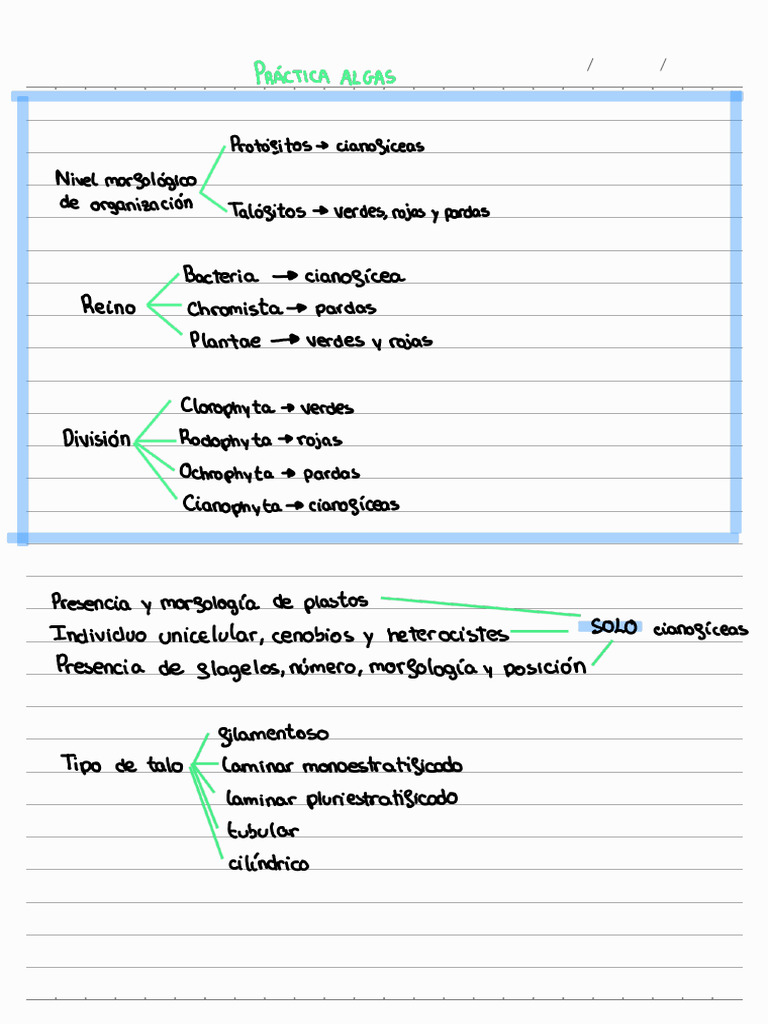 PRÁCTICA ALGAS / /
Protófitos → cianofíceas
Nivel morfológico
de organización
Talófitos → verdes, rojas y pardas
Bacteria → cianofícea
Reino
Chromista → pardas
Plantae → verdes y rojas
Clorophyta → verdes
División
Rodophyta → rojas
Ochrophyta → pardas
Cianophyta → cianofíceas
Presencia y morfología de plastos
Individuo unicelular, cenobios y heterocistes SOLO cianofíceas
Presencia de flagelos, número, morfología y posición
filamentoso
Tipo de talo
laminar monoestratificado
laminar pluriestratificado
tubular
cilíndrico